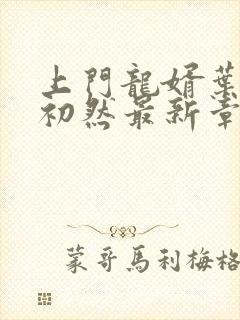 上門龍婿葉
初然最新章
蒙哥馬利梅格